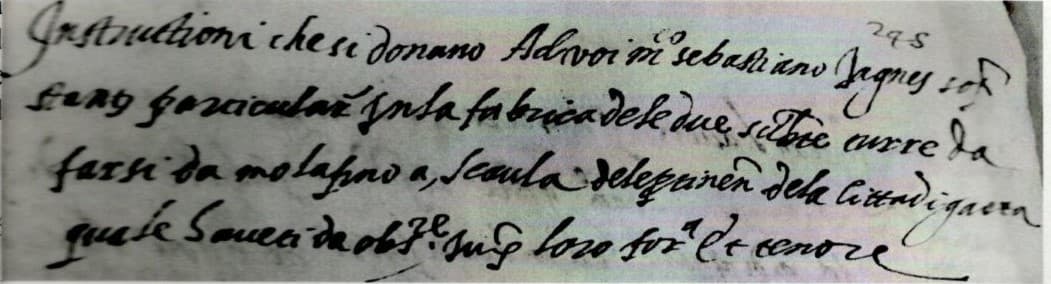 295
Instructioni che si donano Ad voi m.co sebastiano Jagnes sop
stan.. particular Jn la fabrica dele due turre da
farsi da mola fino a, scaula dele ptinen dela Citta di gaeta
quale haveti da obs.re Jux loro for.a et tenore